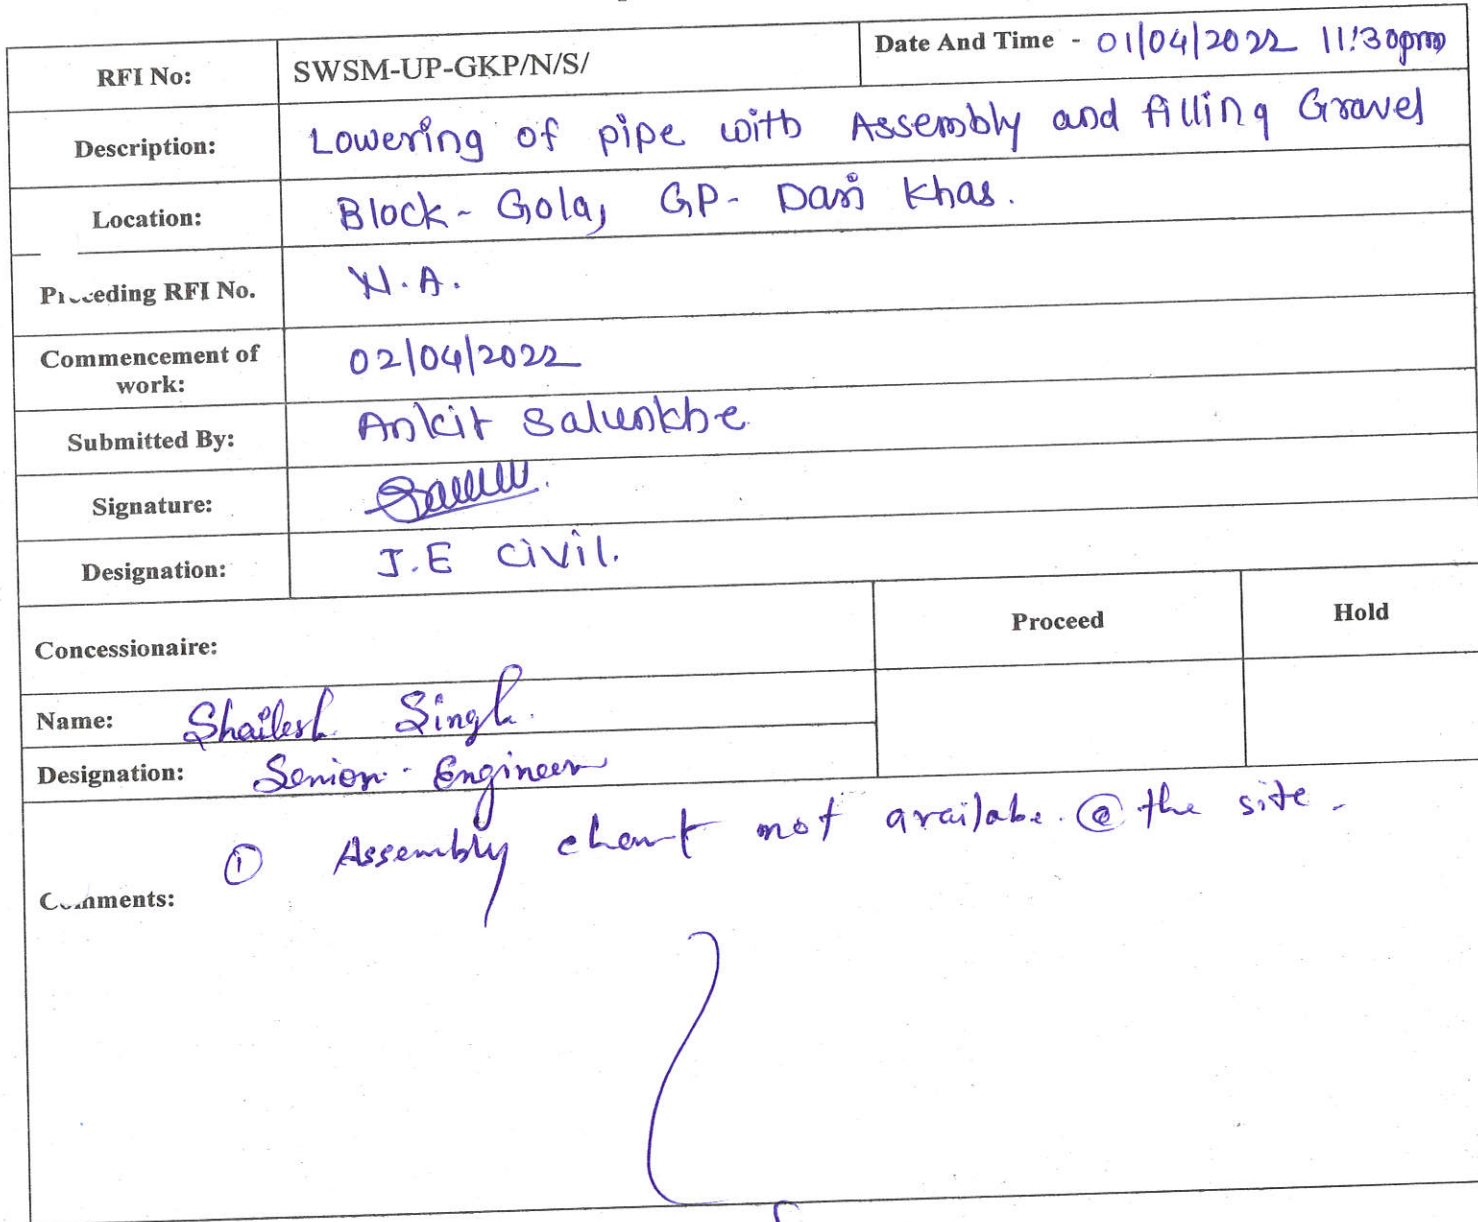 RFI No: SWSM-UP-GKP/N/S/ Date And Time - 01/04/2022 11:30pm
Description: Lowering of pipe with Assembly and filling Gravel
Location: Block - Gola, GP- Dari Khas.
Preceding RFI No. N.A.
Commencement of
work: 02/04/2022
Submitted By: Ankit Salunkhe
Signature:
Designation: J.E Civil.
Concessionaire: Proceed Hold
Name: Shailesh Singh.
Designation: Senior Engineer
① Assembly chart not availabe @ the site.
Comments: